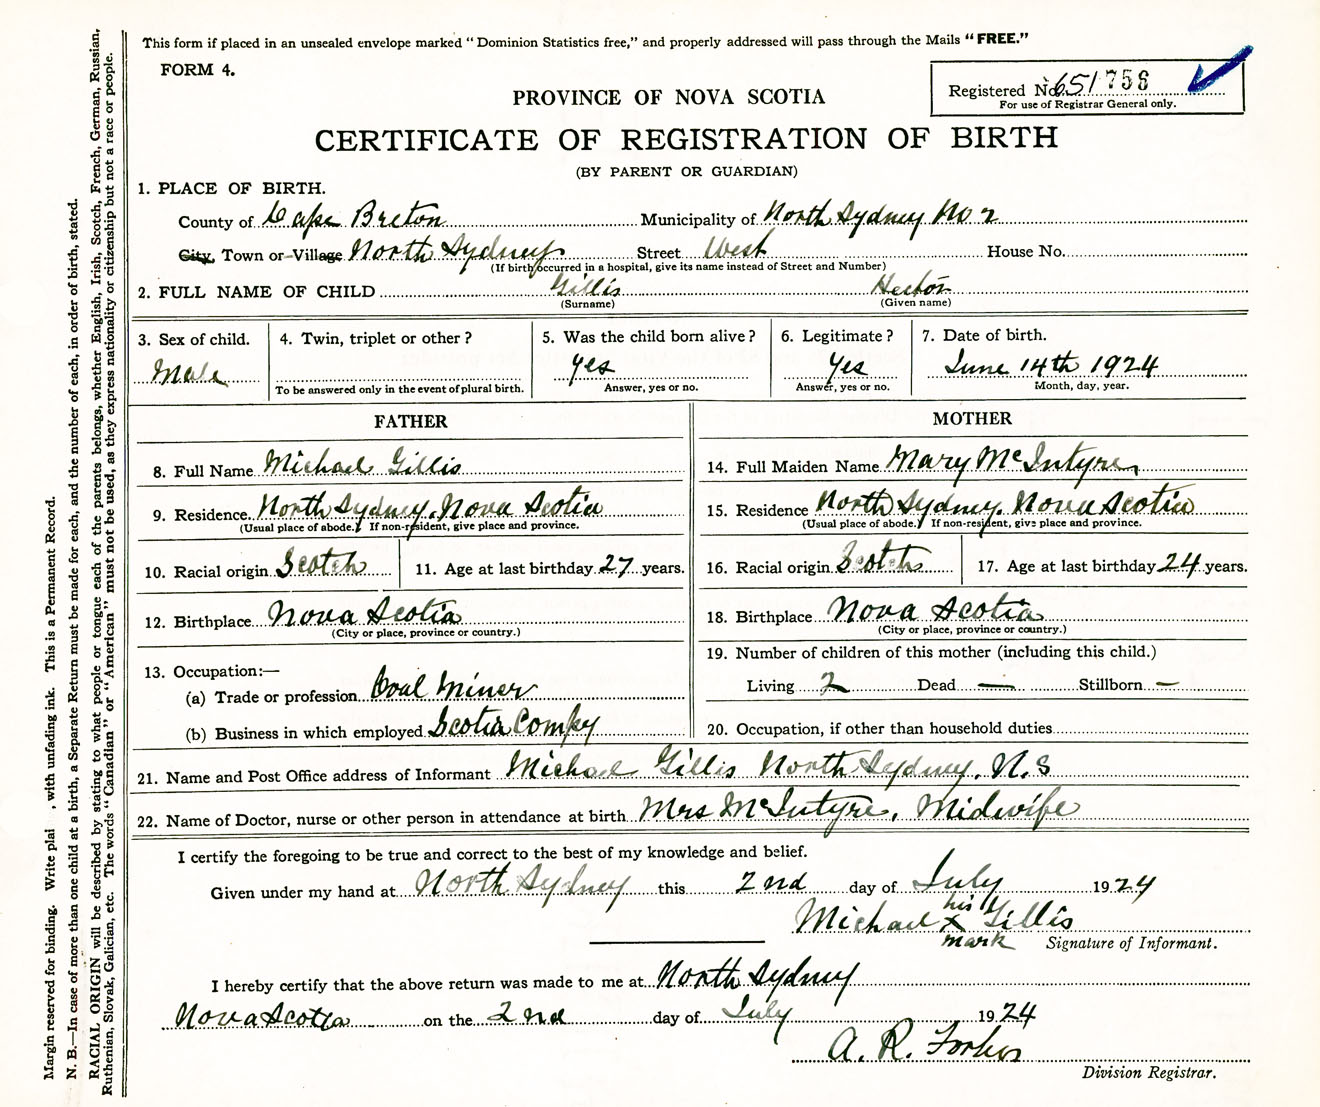 This form if placed in an unsealed envelope marked "Dominion Statistics free," and properly addressed will pass through the Mails "FREE."
FORM 4.
Registered No. 651758
For use of Registrar General only.
PROVINCE OF NOVA SCOTIA
CERTIFICATE OF REGISTRATION OF BIRTH
(BY PARENT OR GUARDIAN)
1. PLACE OF BIRTH.
County of Cape Breton Municipality of North Sydney No 2
City, Town or Village North Sydney Street West House No.
(If birth occurred in a hospital, give its name instead of Street and Number)
2. FULL NAME OF CHILD Gillis Hector
(Surname) (Given name)
3. Sex of child. 4. Twin, triplet or other? 5. Was the child born alive? 6. Legitimate? 7. Date of birth.
Male yes Yes June 14th 1924
To be answered only in the event of plural birth. Answer, yes or no. Answer, yes or no. Month, day, year.
FATHER
8. Full Name Michael Gillis
9. Residence. North Sydney, Nova Scotia
(Usual place of abode.) If non-resident, give place and province.
10. Racial origin Scotch 11. Age at last birthday 27 years.
12. Birthplace Nova Scotia
(City or place, province or country.)
13. Occupation:—
(a) Trade or profession Coal Miner
(b) Business in which employed Scotia Compy
MOTHER
14. Full Maiden Name Mary McIntyre
15. Residence North Sydney, Nova Scotia
(Usual place of abode.) If non-resident, give place and province.
16. Racial origin Scotch 17. Age at last birthday 24 years.
18. Birthplace Nova Scotia
(City or place, province or country.)
19. Number of children of this mother (including this child.)
Living 2 Dead — Stillborn —
20. Occupation, if other than household duties
21. Name and Post Office address of Informant Michael Gillis North Sydney, N.S
22. Name of Doctor, nurse or other person in attendance at birth Mrs McIntyre, Midwife
I certify the foregoing to be true and correct to the best of my knowledge and belief.
Given under my hand at North Sydney this 2nd day of July 1924
his
Michael X Gillis
mark Signature of Informant.
I hereby certify that the above return was made to me at North Sydney
Nova Scotia on the 2nd day of July 1924
A. R. Forbes
Division Registrar.
Margin reserved for binding. Write plai , with unfading ink. This is a Permanent Record.
N. B.—In case of more than one child at a birth, a Separate Return must be made for each, and the number of each, in order of birth, stated.
RACIAL ORIGIN will be described by stating to what people or tongue each of the parents belongs, whether English, Irish, Scotch, French, German, Russian,
Ruthenian, Slovak, Galician, etc. The words "Canadian" or "American" must not be used, as they express nationality or citizenship but not a race or people.